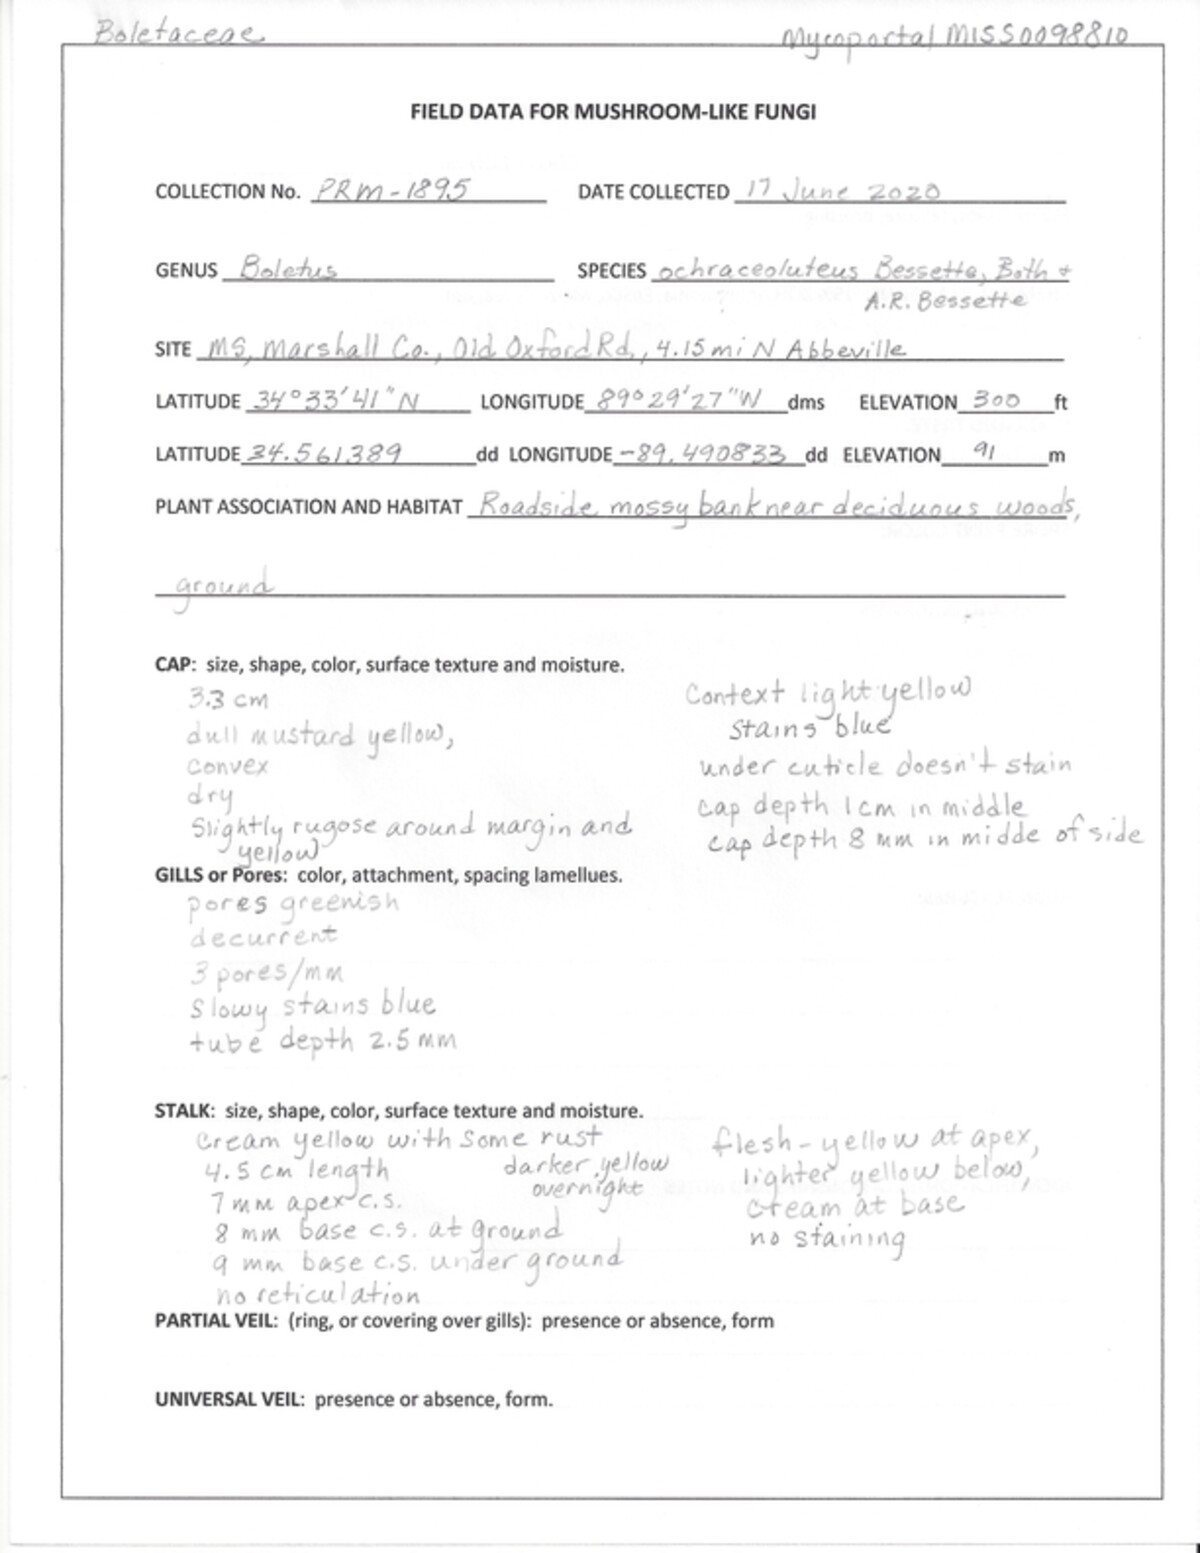 Boletaceae
Mycoportal MISS0098810
FIELD DATA FOR MUSHROOM-LIKE FUNGI
COLLECTION No. PRM-1895 DATE COLLECTED 17 June 2020
GENUS Boletus SPECIES ochraceoluteus Bessette, Both +
A.R. Bessette
SITE MS, Marshall Co., Old Oxford Rd., 4.15 mi N Abbeville
LATITUDE 34°33'41"N LONGITUDE 89°29'27"W dms ELEVATION 300 ft
LATITUDE 34.561389 dd LONGITUDE -89.490833 dd ELEVATION 91 m
PLANT ASSOCIATION AND HABITAT Roadside mossy bank near deciduous woods,
ground
CAP: size, shape, color, surface texture and moisture.
3.3 cm
dull mustard yellow,
convex
dry
Slightly rugose around margin and
yellow
Context light yellow
stains blue
under cuticle doesn't stain
cap depth 1cm in middle
cap depth 8 mm in midde of side
GILLS or Pores: color, attachment, spacing lamellues.
pores greenish
decurrent
3 pores/mm
Slowy stains blue
tube depth 2.5 mm
STALK: size, shape, color, surface texture and moisture.
Cream yellow with some rust
4.5 cm length
darker yellow
overnight
7 mm apex c.s.
8 mm base c.s. at ground
9 mm base c.s. under ground
no reticulation
flesh-yellow at apex,
lighter yellow below,
cream at base
no staining
PARTIAL VEIL: (ring, or covering over gills): presence or absence, form
UNIVERSAL VEIL: presence or absence, form.